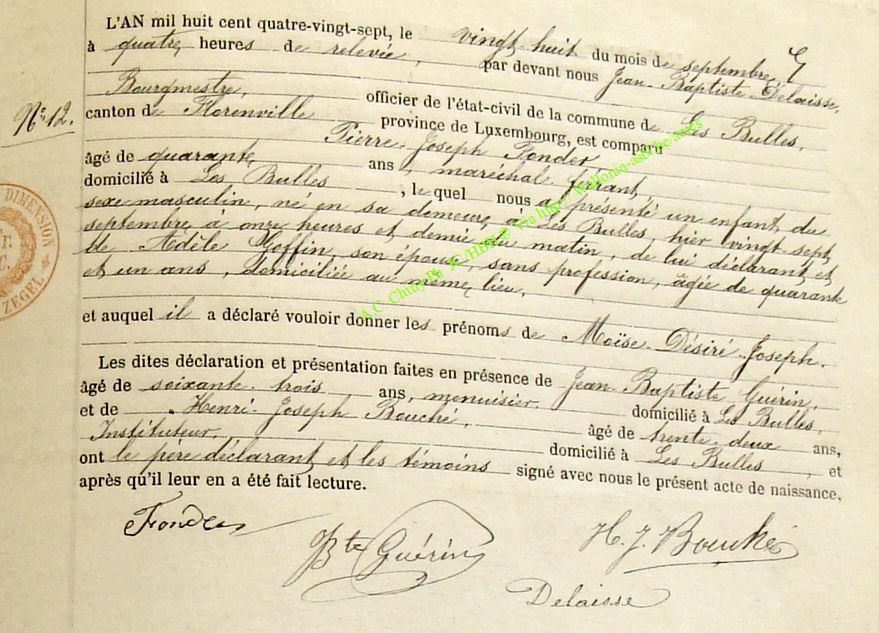 L'AN mil huit cent quatre-vingt-sept, le vingt huit du mois de septembre,
à quatre heures de relevée, par devant nous Jean-Baptiste Delaisse,
Bourgmestre, officier de l'état-civil de la commune de Les Bulles,
N° 12.
canton de Florenville province de Luxembourg, est comparu
Pierre-Joseph Fonder,
âgé de quarante ans, maréchal-ferrant,
domicilié à Les Bulles, le quel nous a présenté un enfant du
sexe masculin, né en sa demeure, à Les Bulles, hier vingt sept
septembre à onze heures et demie du matin, de lui déclarant et
de Adèle Goffin, son épouse, sans profession, âgée de quarante
et un ans, domiciliée au même lieu,
et auquel il a déclaré vouloir donner les prénoms de Moïse-Désiré-Joseph.
Les dites déclaration et présentation faites en présence de Jean-Baptiste Guérin,
âgé de soixante-trois ans, menuisier, domicilié à Les Bulles,
et de Henri-Joseph Bouché, âgé de trente-deux ans,
Instituteur, domicilié à Les Bulles, et
ont le père déclarant et les témoins signé avec nous le présent acte de naissance,
après qu'il leur en a été fait lecture.
Fonder
Bte Guérin
H. J. Bouché
Delaisse
DIMENSION
ZEGEL